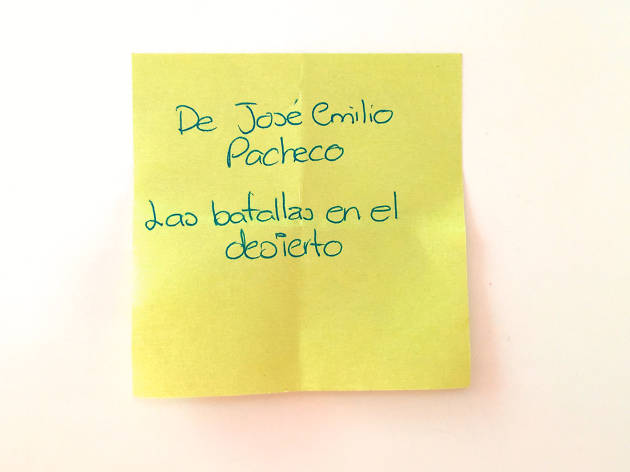 De José Emilio
Pacheco
Las batallas en el
desierto